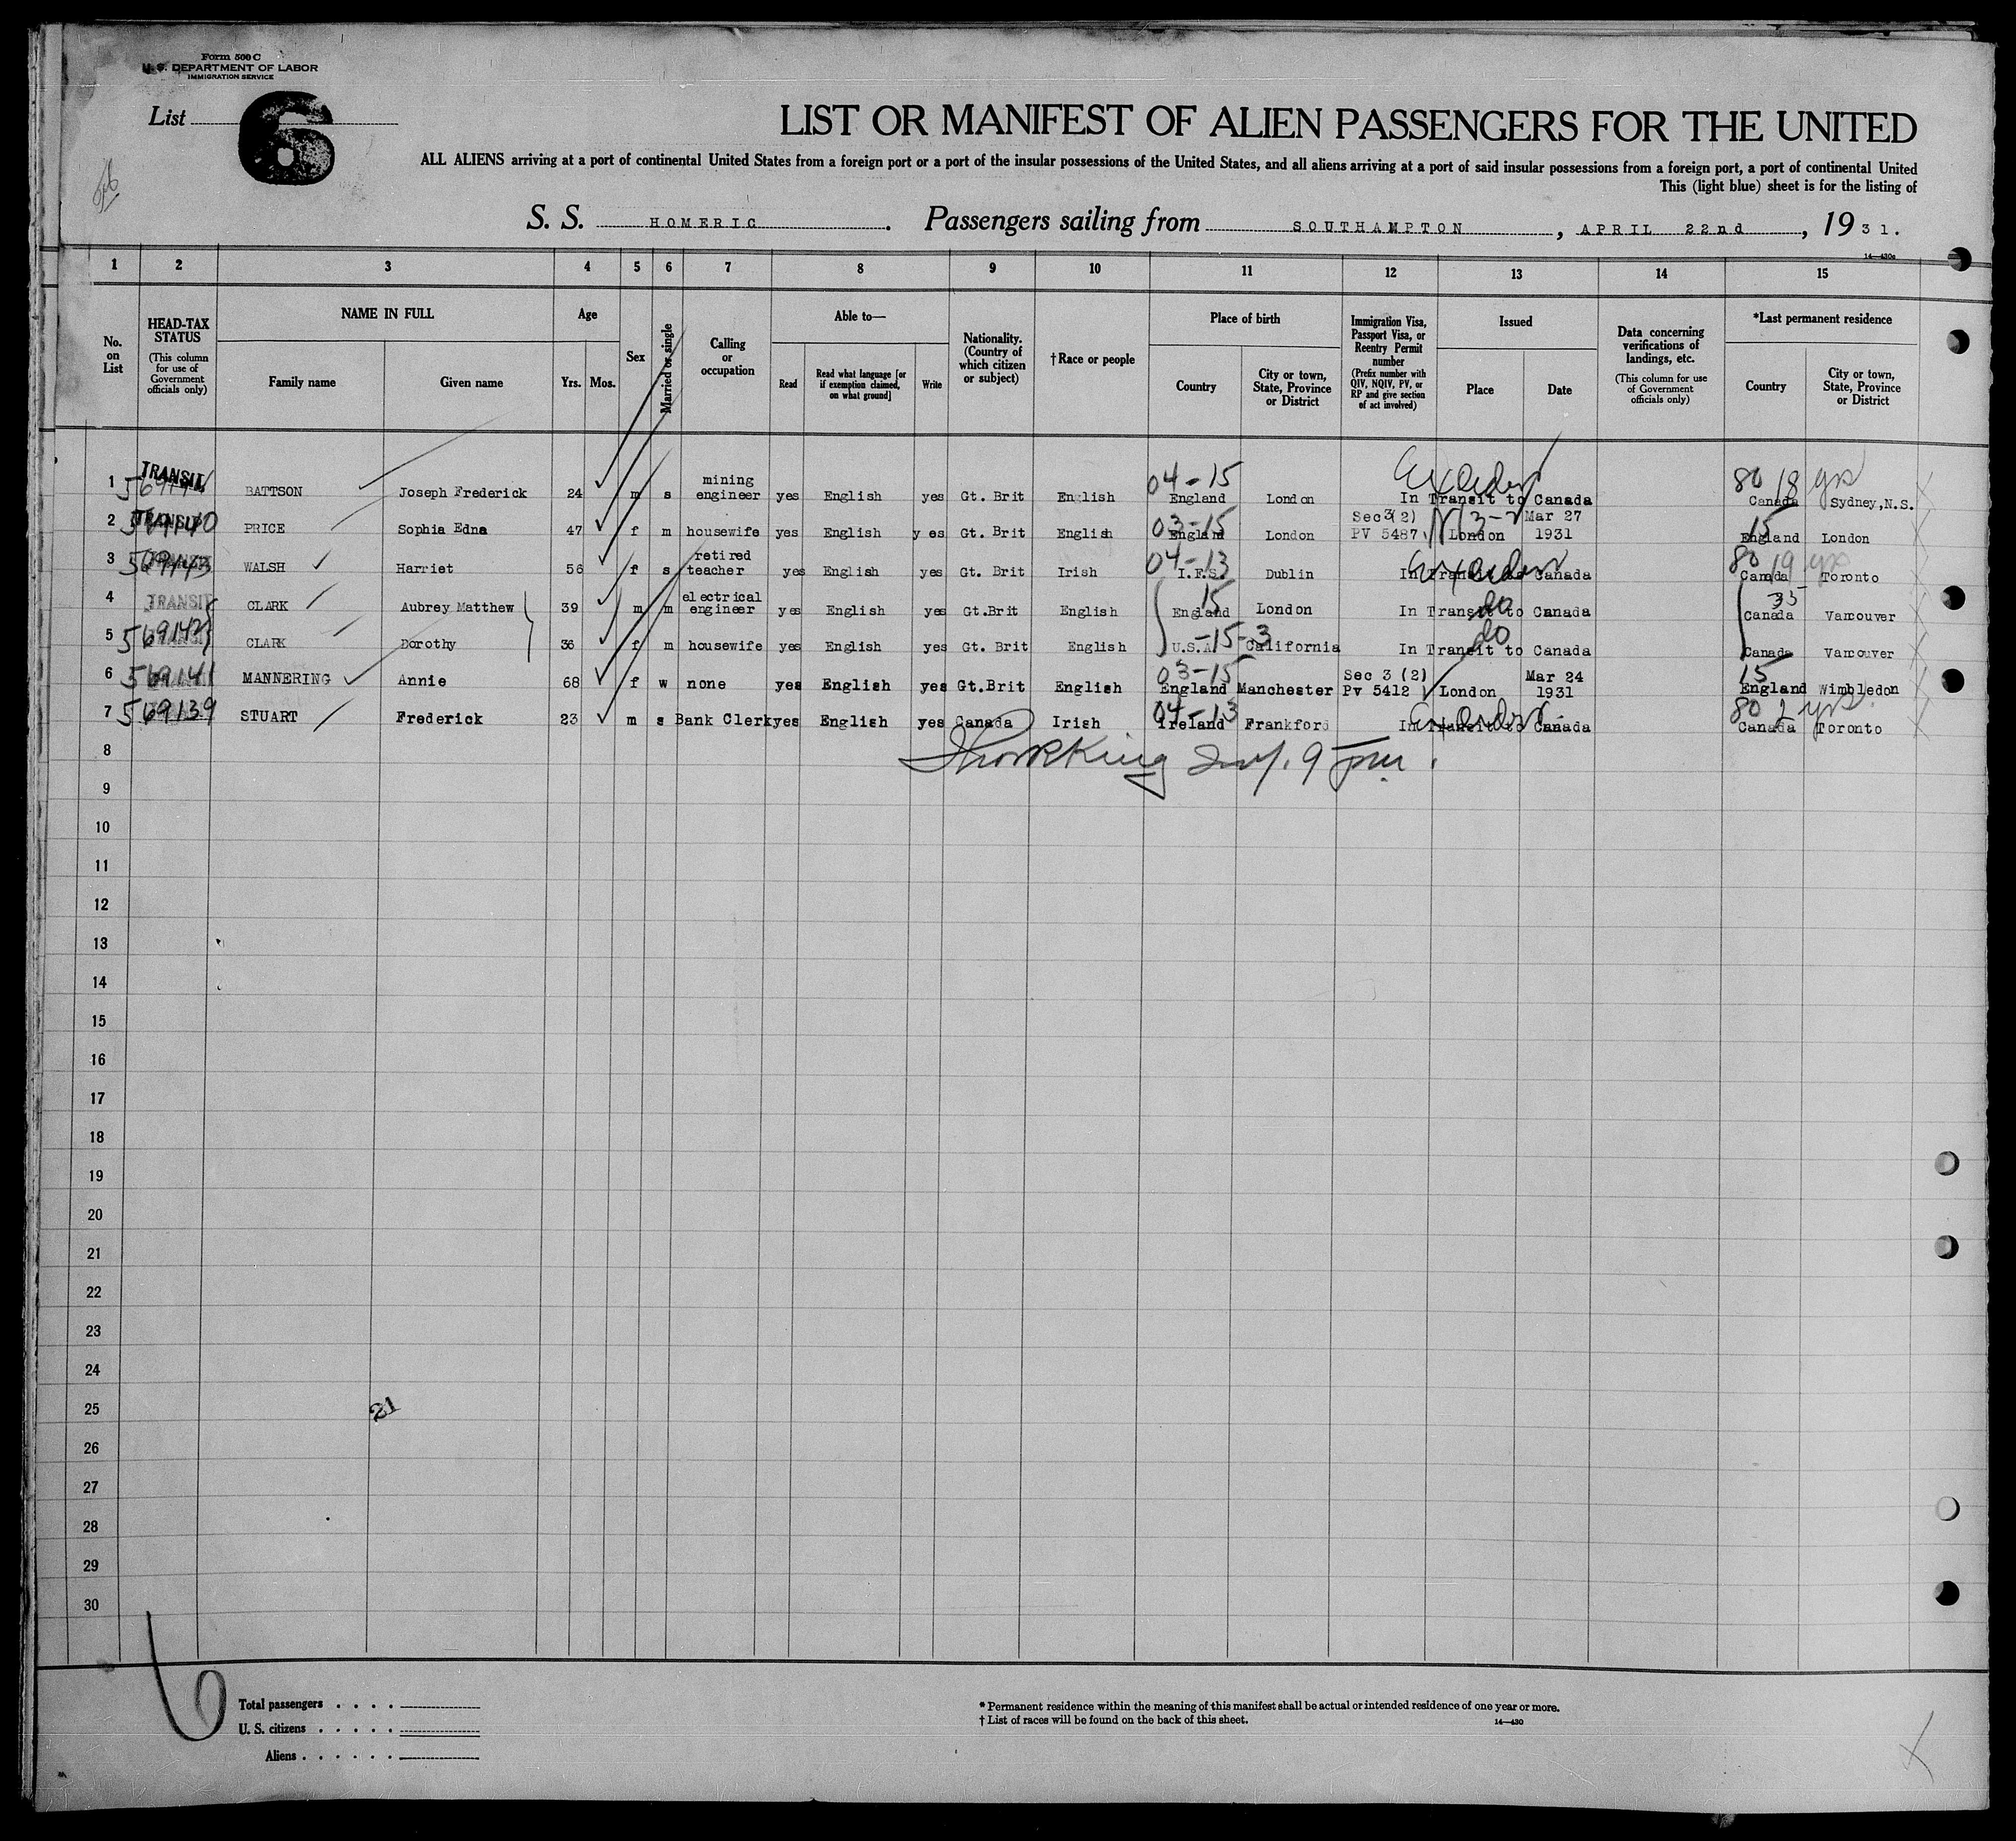 Form 500 C
U. S. DEPARTMENT OF LABOR
IMMIGRATION SERVICE
List 6
LIST OR MANIFEST OF ALIEN PASSENGERS FOR THE UNITED
ALL ALIENS arriving at a port of continental United States from a foreign port or a port of the insular possessions of the United States, and all aliens arriving at a port of said insular possessions from a foreign port, a port of continental United
This (light blue) sheet is for the listing of
S. S. HOMERIC. Passengers sailing from SOUTHAMPTON, APRIL 22nd, 1931.
14—430a
1 2 3 4 5 6 7 8 9 10 11 12 13 14 15
No. on List
HEAD-TAX STATUS (This column for use of Government officials only)
NAME IN FULL
Family name Given name
Age
Yrs. Mos.
Sex
Married or single
Calling or occupation
Able to—
Read Read what language [or if exemption claimed, on what ground] Write
Nationality. (Country of which citizen or subject)
†Race or people
Place of birth
Country City or town, State, Province or District
Immigration Visa, Passport Visa, or Reentry Permit number (Prefix number with QIV, NQIV, PV, or RP and give section of act involved)
Issued
Place Date
Data concerning verifications of landings, etc. (This column for use of Government officials only)
*Last permanent residence
Country City or town, State, Province or District
1 TRANSIT BATTSON Joseph Frederick 24 m s mining engineer yes English yes Gt. Brit English 04-15 England London In Transit to Canada 80 18 yrs Canada Sydney,N.S.
2 TRANSIT 569140 PRICE Sophia Edna 47 f m housewife yes English yes Gt. Brit English 03-15 England London Sec 3(2) PV 5487 London Mar 27 1931 15 England London
3 569143 WALSH Harriet 56 f s retired teacher yes English yes Gt. Brit Irish 04-13 I.F.S. Dublin In Transit to Canada 80 19 yrs Canada Toronto
4 TRANSIT CLARK Aubrey Matthew 39 m m electrical engineer yes English yes Gt.Brit English 15 England London In Transit to Canada do 35 Canada Vancouver
5 569142 CLARK Dorothy 36 f m housewife yes English yes Gt. Brit English U.S.A. -15-3 California In Transit to Canada do Canada Vancouver
6 569141 MANNERING Annie 68 f w none yes English yes Gt.Brit English 03-15 England Manchester Sec 3 (2) Pv 5412 London Mar 24 1931 15 England Wimbledon
7 569139 STUART Frederick 23 m s Bank Clerk yes English yes Canada Irish 04-13 Ireland Frankford In Transit to Canada 80 2 yrs Canada Toronto
8
9
10
11
12
13
14
15
16
17
18
19
20
21
22
23
24
25
21
26
27
28
29
30
6
Total passengers . . . .
U. S. citizens . . . . .
Aliens . . . . . .
* Permanent residence within the meaning of this manifest shall be actual or intended residence of one year or more.
† List of races will be found on the back of this sheet.
14—430